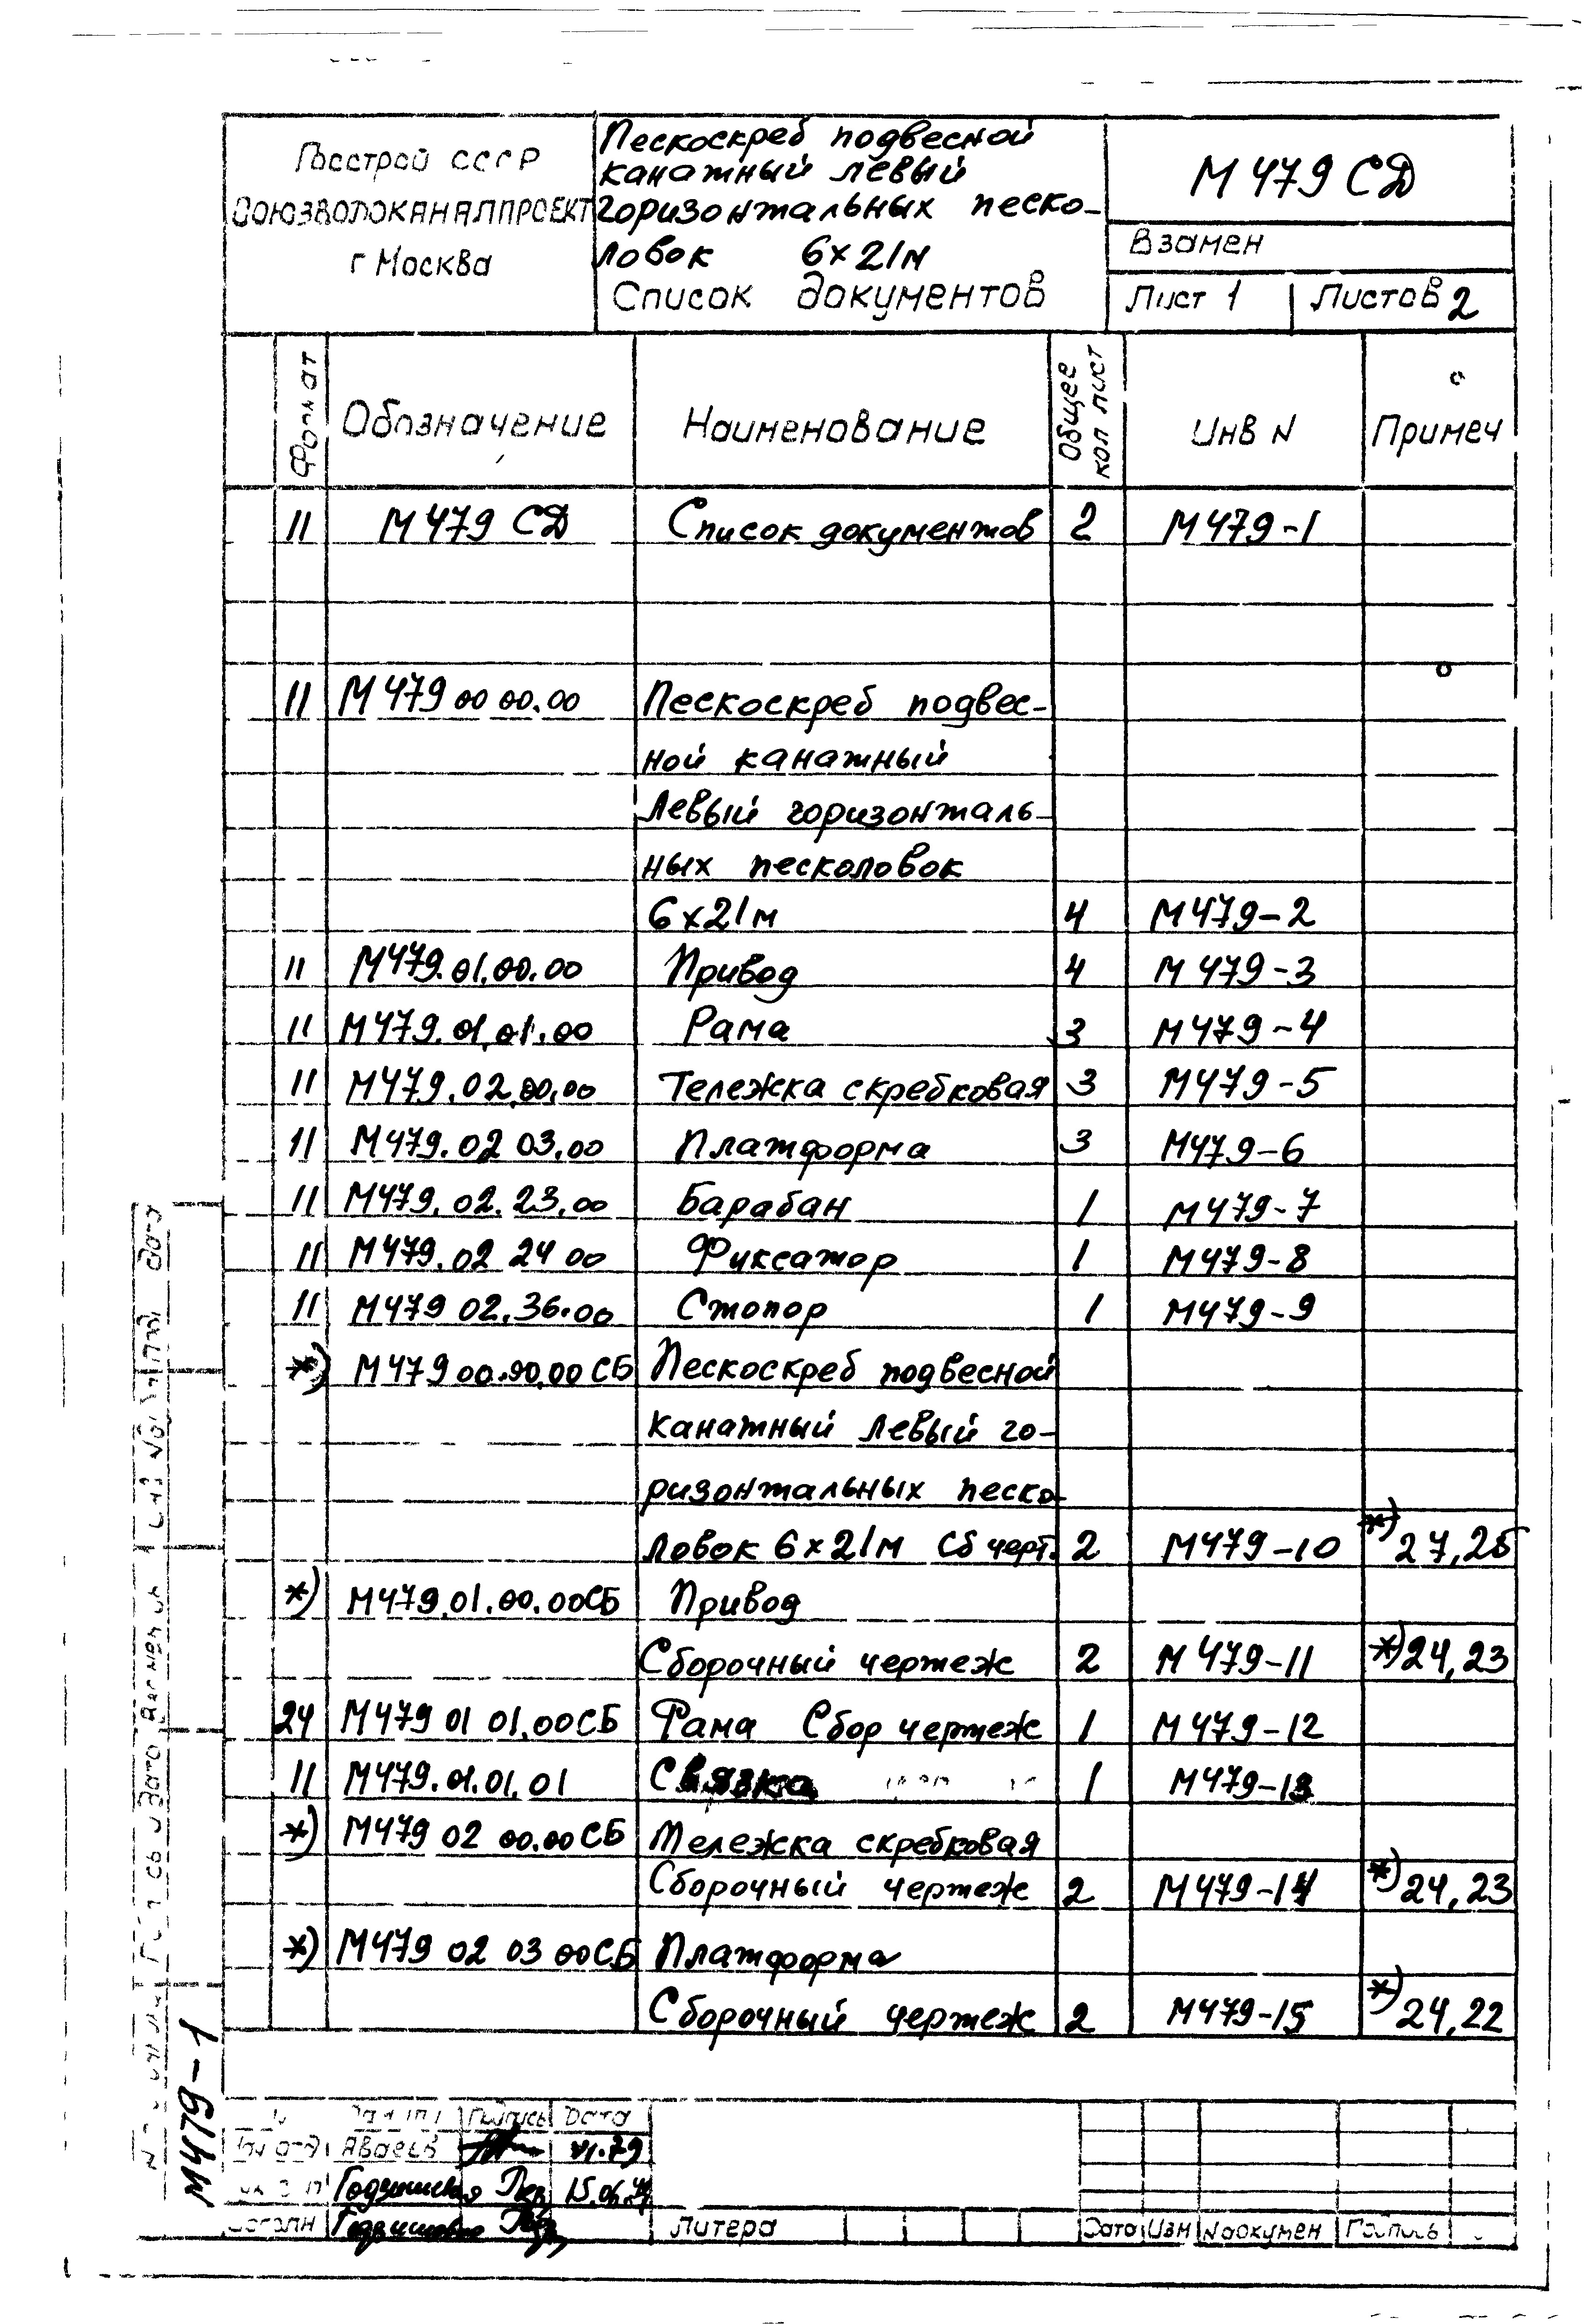 Госстрой СССР
СОЮЗВОДОКАНАЛПРОЕКТ
г Москва
Пескоскреб подвесной
канатный левый
горизонтальных песко-
ловок 6×21м
Список документов
М 479 СД
Взамен
Лист 1 Листов 2
Формат Обозначение Наименование Общее кол лист Инв N Примеч
11 М 479 СД Список документов 2 М 479-1
11 М 479 00 00.00 Пескоскреб подвес-
ной канатный
левый горизонталь-
ных песколовок
6×21м 4 М479-2
11 М479.01.00.00 Привод 4 М 479-3
11 М479.01.01.00 Рама 3 М479-4
11 М479.02.00.00 Тележка скребковая 3 М479-5
11 М479.02 03.00 Платформа 3 М479-6
11 М479.02.23.00 Барабан 1 М479-7
11 М479.02 24 00 Фиксатор 1 М479-8
11 М479 02.36.00 Стопор 1 М479-9
*) М479 00.00.00 СБ Пескоскреб подвесной
канатный левый го-
ризонтальных песко-
ловок 6×21м Сб черт. 2 М479-10 *) 27,25
*) М479.01.00.00СБ Привод
Сборочный чертеж 2 М 479-11 *) 24,23
24 М479 01 01.00СБ Рама Сбор чертеж 1 М479-12
11 М479.01.01.01 Связка 1 М479-13
*) М479 02 00.00 СБ Тележка скребковая
Сборочный чертеж 2 М479-14 *) 24,23
*) М479 02 03 00СБ Платформа
Сборочный чертеж 2 М479-15 *) 24,22
М479-1
Подпись Дата
Аваев VI.79
15.06.79
Литера
Дата Изм N докумен Подпись